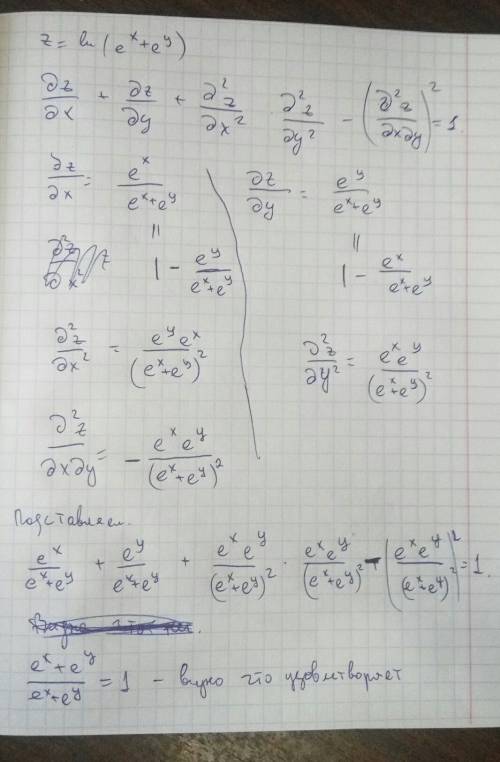 z = ln(eˣ+eʸ)
∂z/∂x + ∂z/∂y + ∂²z/∂x² · ∂²z/∂y² − (∂²z/∂x∂y)² = 1.
∂z/∂x = eˣ/(eˣ+eʸ) ∂z/∂y = eʸ/(eˣ+eʸ)
|| ||
1 − eʸ/(eˣ+eʸ) 1 − eˣ/(eˣ+eʸ)
∂²z/∂x² = eʸeˣ/(eˣ+eʸ)² ∂²z/∂y² = eˣeʸ/(eˣ+eʸ)²
∂²z/∂x∂y = − eˣeʸ/(eˣ+eʸ)²
Подставляем.
eˣ/(eˣ+eʸ) + eʸ/(eˣ+eʸ) + eˣeʸ/(eˣ+eʸ)² · eˣeʸ/(eˣ+eʸ)² − (eˣeʸ/(eˣ+eʸ)²)² = 1.
(eˣ+eʸ)/(eˣ+eʸ) = 1 – видно что удовлетворяет